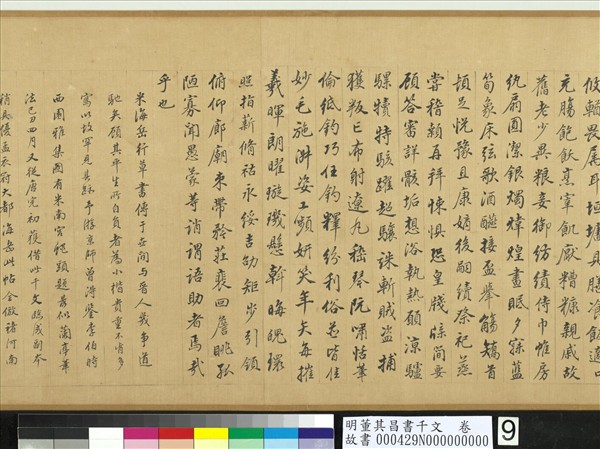 攸畏屬耳垣墻具膳飡飯適口
充腸飽飫烹宰飢厭糟糠親戚故
舊老少異粮妾御紡績侍巾帷房
紈扇圓潔銀燭煒煌晝眠夕寐藍
笋象床弦歌酒讌接盃舉觴矯手
頓足悅豫且康嫡後嗣續祭祀蒸
嘗稽顙再拜悚懼恐惶牋牒簡要
顧答審詳骸垢想浴執熱願涼驢
騾犢特駭躍超驤誅斬賊盜捕
獲叛亡布射遼丸嵇琴阮嘯恬筆
倫紙鈞巧任釣釋紛利俗並皆佳
妙毛施淑姿工顰妍笑年矢每催
羲暉朗曜璇璣懸斡晦魄環
照指薪脩祜永綏吉劭矩步引領
俯仰廊廟束帶矜莊裵回瞻眺孤
陋寡聞愚蒙等誚謂語助者焉哉
乎也
米海岳行草書傳于世間與晉人幾爭道
馳矣顧其平生所自負者為小楷貴重不肯多
寫以故罕見其跡予游京師曾得鑒李伯時
西園雅集圖有米南宮蠅頭題甚似蘭亭筆
法己巳四月又從唐完初獲借此千文臨成副本
稍具優孟衣冠大都海岳此帖全倣褚河南
明董其昌書千文　卷
故書000429N000000000
9